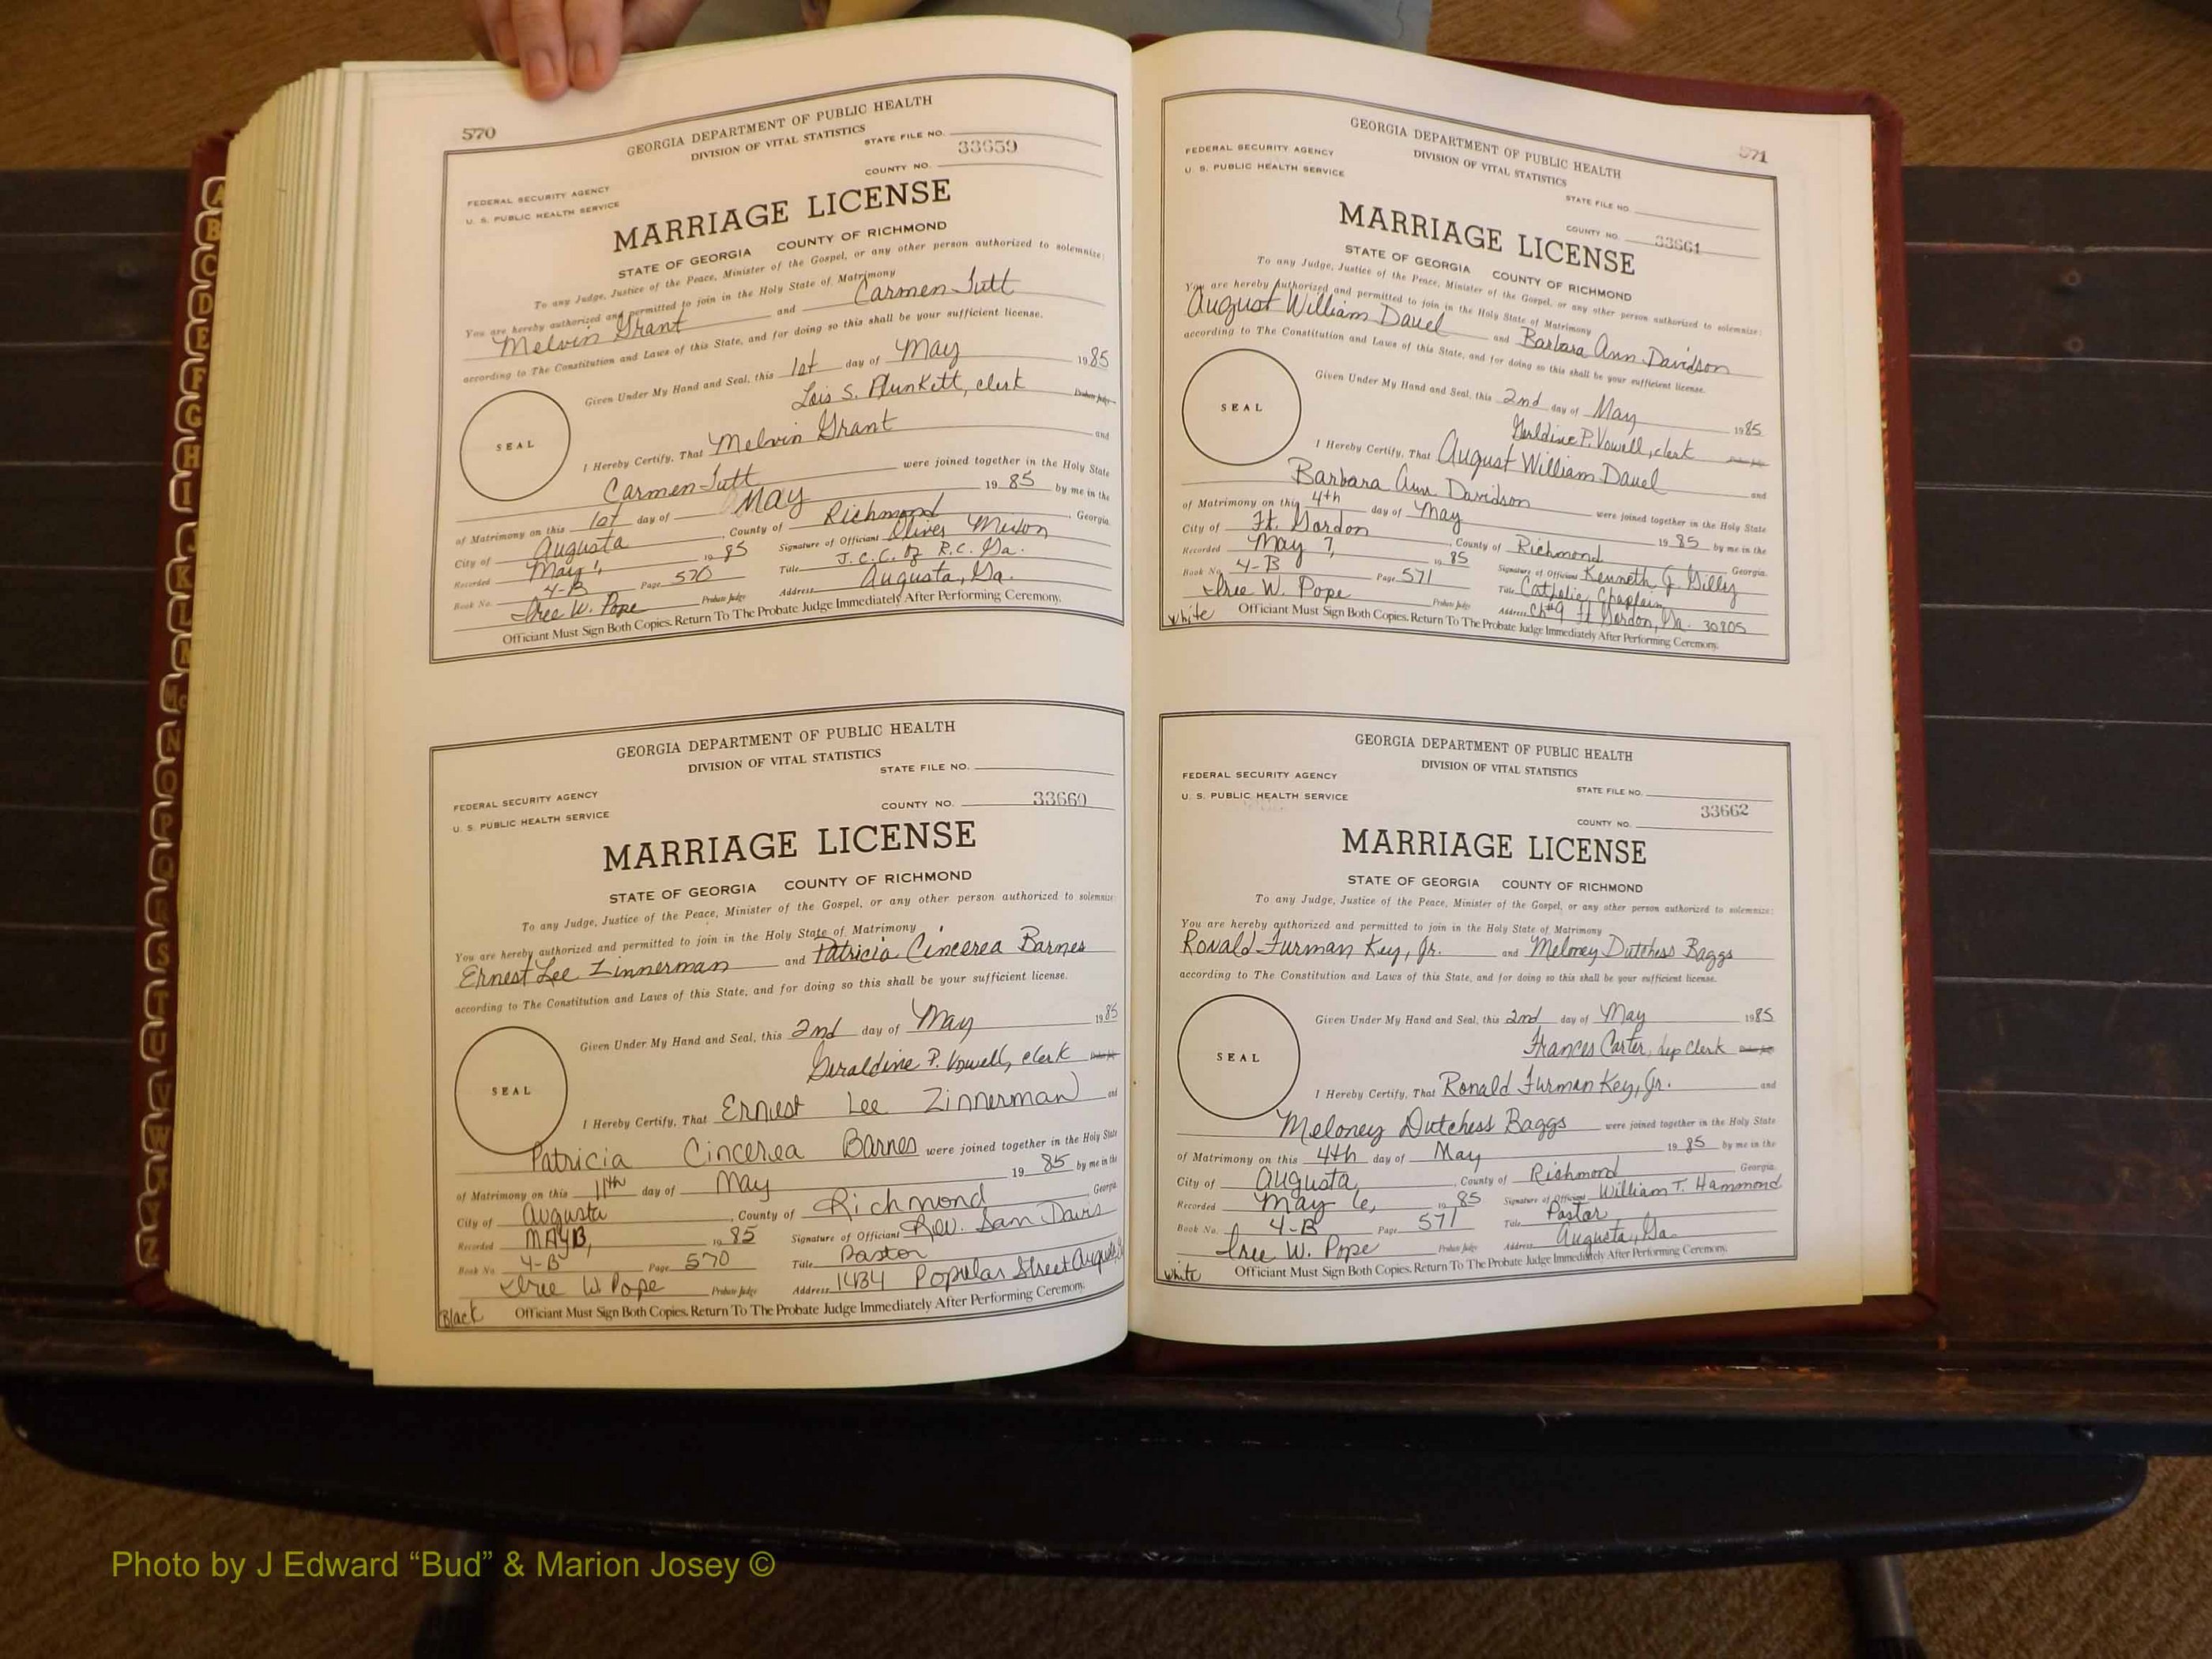 570
GEORGIA DEPARTMENT OF PUBLIC HEALTH
DIVISION OF VITAL STATISTICS
STATE FILE NO.
33659
COUNTY NO.
FEDERAL SECURITY AGENCY
U. S. PUBLIC HEALTH SERVICE
MARRIAGE LICENSE
STATE OF GEORGIA COUNTY OF RICHMOND
To any Judge, Justice of the Peace, Minister of the Gospel, or any other person authorized to solemnize:
You are hereby authorized and permitted to join in the Holy State of Matrimony
Melvin Grant and Carmen Tutt
according to The Constitution and Laws of this State, and for doing so this shall be your sufficient license.
Given Under My Hand and Seal, this 1st day of May 1985
Lois S. Plunkett, clerk Probate Judge
SEAL
I Hereby Certify, That Melvin Grant and
Carmen Tutt were joined together in the Holy State
of Matrimony on this 1st day of May 19 85 by me in the
City of Augusta, County of Richmond, Georgia.
Recorded May 1, 19 85 Signature of Officiant Oliver
Book No. 4-B Page 570 Title J.C.C. of R.C. Ga.
Iree W. Pope Probate Judge Address Augusta, Ga.
Officiant Must Sign Both Copies. Return To The Probate Judge Immediately After Performing Ceremony.
GEORGIA DEPARTMENT OF PUBLIC HEALTH
DIVISION OF VITAL STATISTICS
STATE FILE NO.
FEDERAL SECURITY AGENCY
COUNTY NO. 33660
U. S. PUBLIC HEALTH SERVICE
MARRIAGE LICENSE
STATE OF GEORGIA COUNTY OF RICHMOND
To any Judge, Justice of the Peace, Minister of the Gospel, or any other person authorized to solemnize:
You are hereby authorized and permitted to join in the Holy State of Matrimony
Ernest Lee Zinnerman and Patricia Cincerea Barnes
according to The Constitution and Laws of this State, and for doing so this shall be your sufficient license.
Given Under My Hand and Seal, this 2nd day of May 1985
Geraldine P. Vowell, clerk Probate Judge
SEAL
I Hereby Certify, That Ernest Lee Zinnerman and
Patricia Cincerea Barnes were joined together in the Holy State
of Matrimony on this 11th day of May 19 85 by me in the
City of Augusta, County of Richmond Georgia
Recorded MAY 13, 19 85 Signature of Officiant Rev. Sam Davis
Book No. 4-B Page 570 Title Pastor
Iree W Pope Probate Judge Address 1434 Popular Street Augusta
Black Officiant Must Sign Both Copies. Return To The Probate Judge Immediately After Performing Ceremony.
571
GEORGIA DEPARTMENT OF PUBLIC HEALTH
DIVISION OF VITAL STATISTICS
FEDERAL SECURITY AGENCY
U. S. PUBLIC HEALTH SERVICE
STATE FILE NO.
COUNTY NO. 33661
MARRIAGE LICENSE
STATE OF GEORGIA COUNTY OF RICHMOND
To any Judge, Justice of the Peace, Minister of the Gospel, or any other person authorized to solemnize:
You are hereby authorized and permitted to join in the Holy State of Matrimony
August William Dauel and Barbara Ann Davidson
according to The Constitution and Laws of this State, and for doing so this shall be your sufficient license.
Given Under My Hand and Seal, this 2nd day of May 1985
Geraldine P. Vowell, clerk Probate Judge
SEAL
I Hereby Certify, That August William Dauel and
Barbara Ann Davidson were joined together in the Holy State
of Matrimony on this 4th day of May 19 85 by me in the
City of Ft. Gordon, County of Richmond Georgia.
Recorded May 7, 19 85 Signature of Officiant Kenneth J. Gilly
Book No. 4-B Page 571 Title Catholic Chaplain
Iree W. Pope Probate Judge Address Ch#9 Ft Gordon, Ga. 30905
White Officiant Must Sign Both Copies. Return To The Probate Judge Immediately After Performing Ceremony.
GEORGIA DEPARTMENT OF PUBLIC HEALTH
DIVISION OF VITAL STATISTICS
FEDERAL SECURITY AGENCY
STATE FILE NO.
U. S. PUBLIC HEALTH SERVICE
33662
COUNTY NO.
MARRIAGE LICENSE
STATE OF GEORGIA COUNTY OF RICHMOND
To any Judge, Justice of the Peace, Minister of the Gospel, or any other person authorized to solemnize:
You are hereby authorized and permitted to join in the Holy State of Matrimony
Ronald Furman Key, Jr. and Meloney Dutchess Baggs
according to The Constitution and Laws of this State, and for doing so this shall be your sufficient license.
Given Under My Hand and Seal, this 2nd day of May 1985
Frances Carter, Dep Clerk Probate Judge
SEAL
I Hereby Certify, That Ronald Furman Key, Jr. and
Meloney Dutchess Baggs were joined together in the Holy State
of Matrimony on this 4th day of May 19 85 by me in the
City of Augusta, County of Richmond Georgia.
Recorded May 6, 19 85 Signature of Officiant William T. Hammond
Book No. 4-B Page 571 Title Pastor
Iree W. Pope Probate Judge Address Augusta, Ga.
White Officiant Must Sign Both Copies. Return To The Probate Judge Immediately After Performing Ceremony.
Photo by J Edward “Bud” & Marion Josey ©